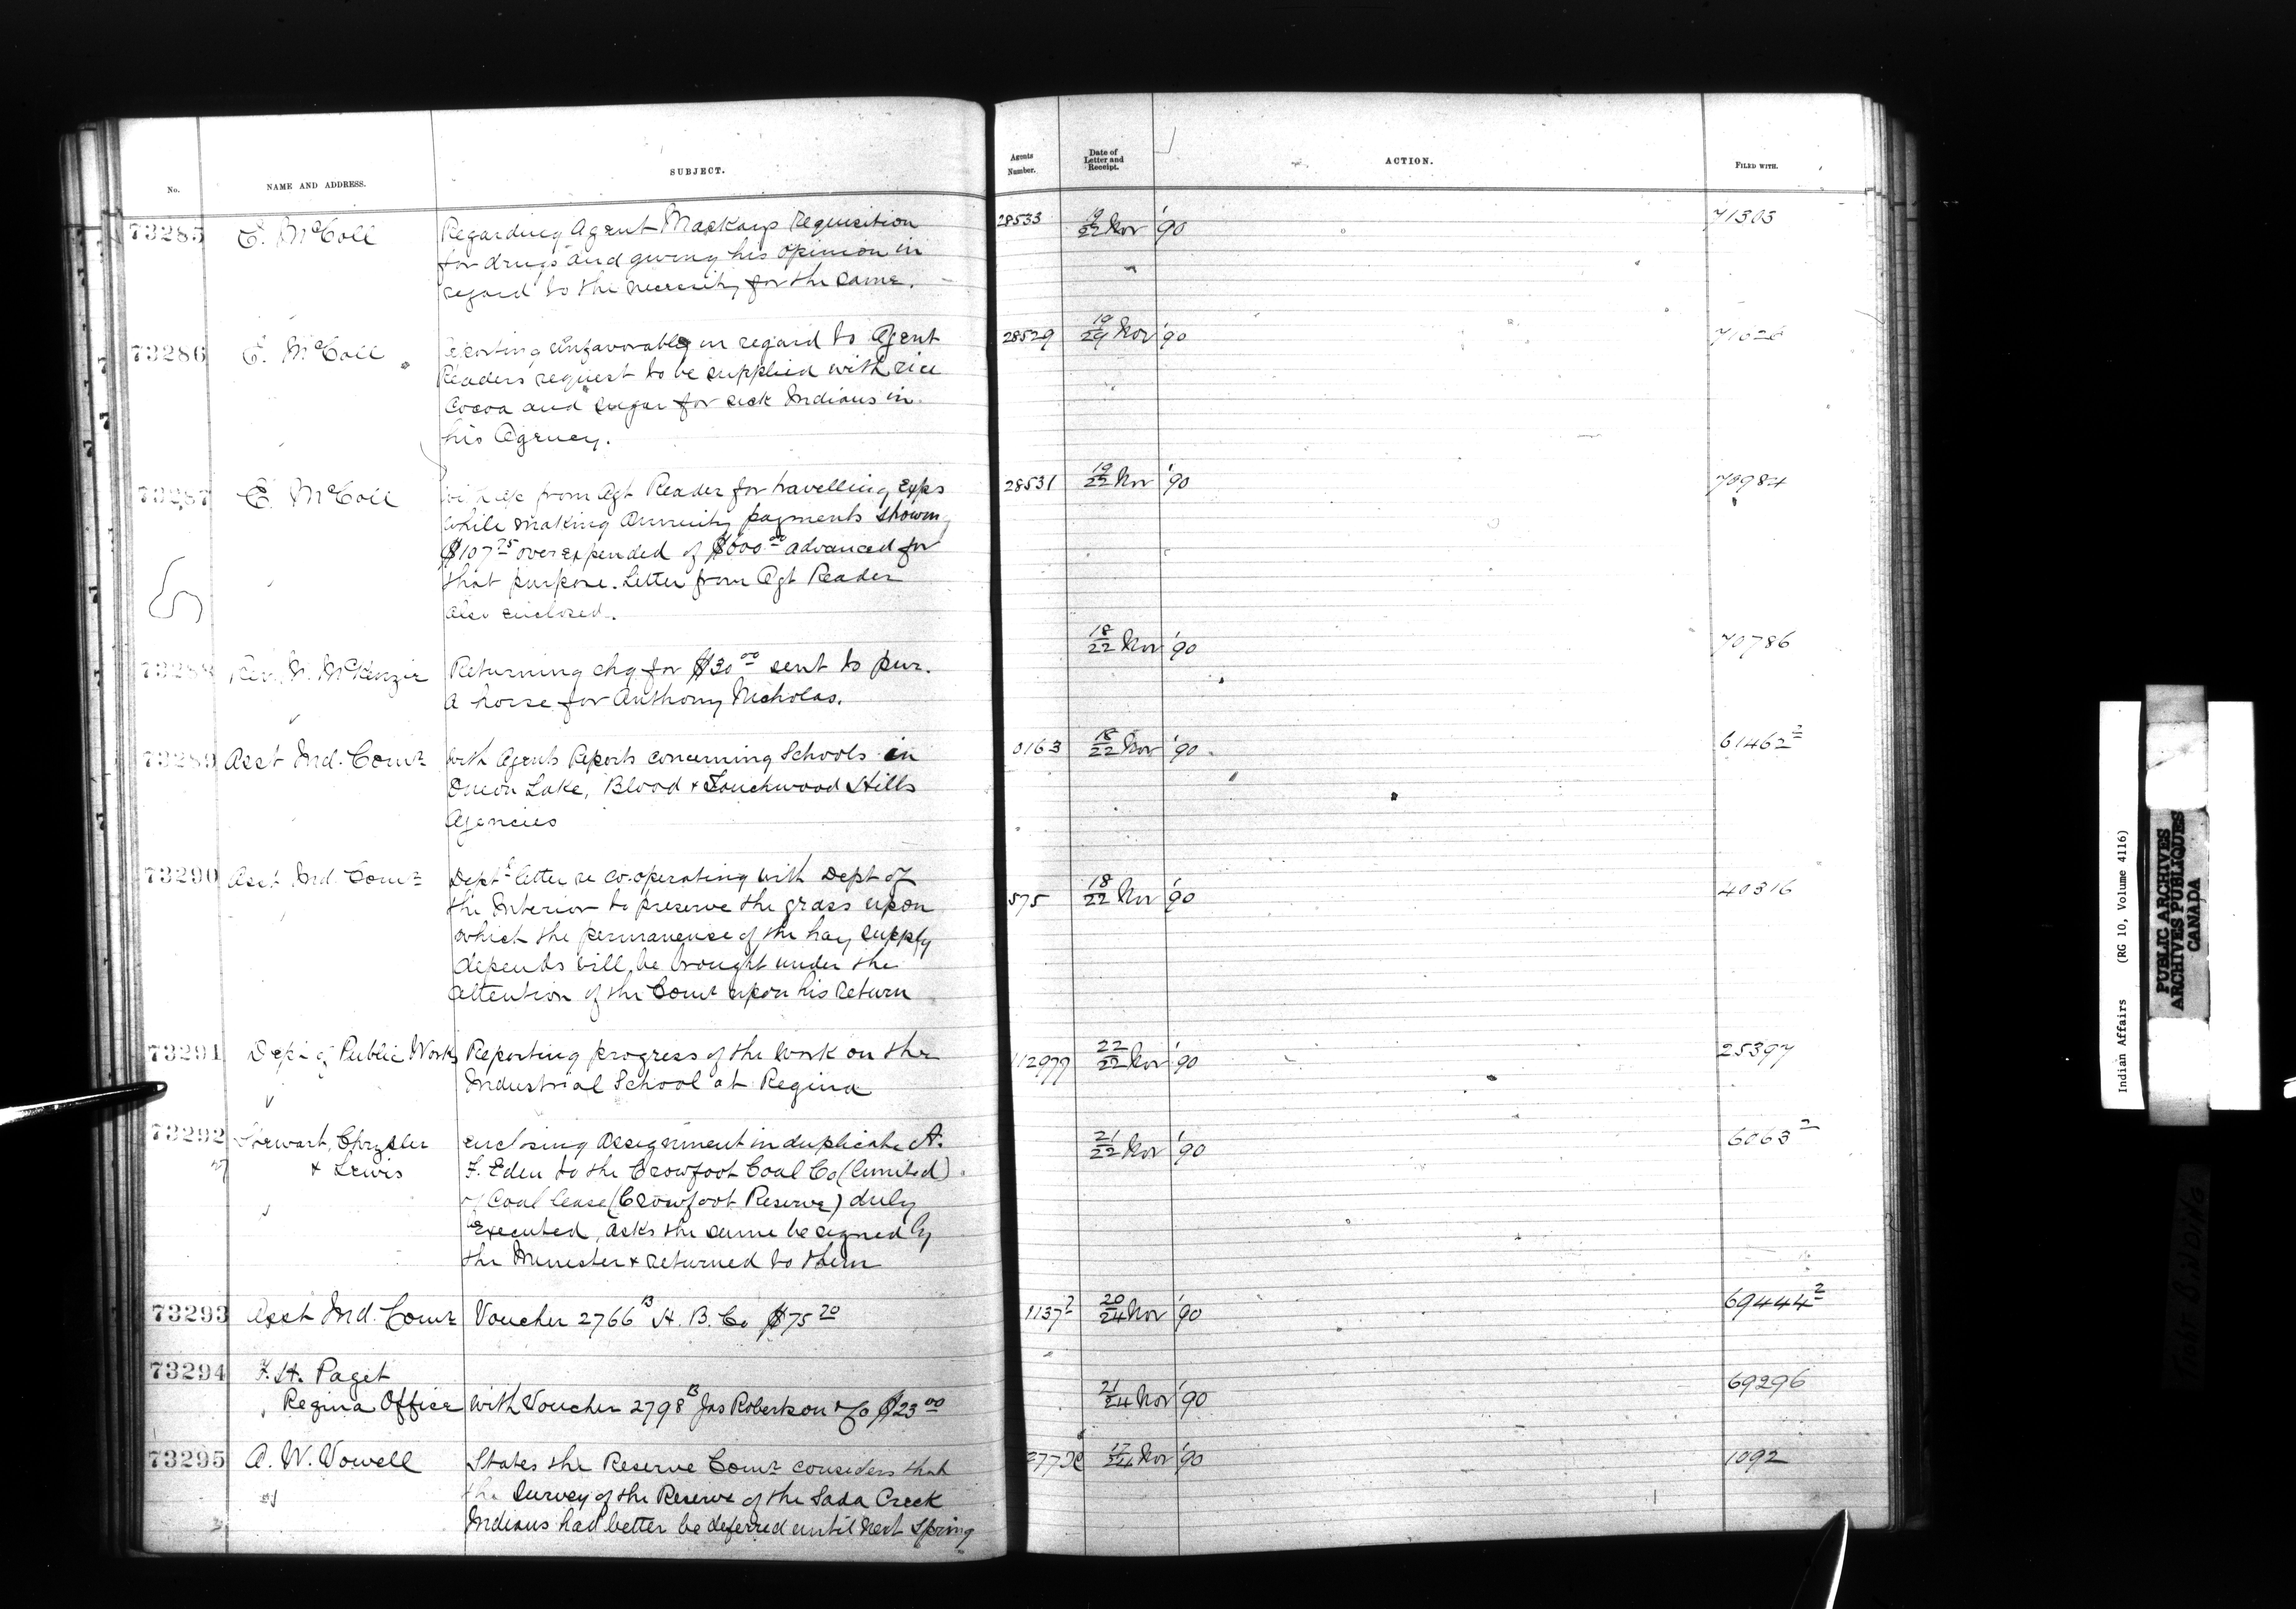 No.
NAME AND ADDRESS.
SUBJECT.
Agents Number.
Date of Letter and Receipt.
ACTION.
FILED WITH.
73285 E. McColl Regarding Agent Mackays Requisition 28533 19/22 Nov '90 71303
for drugs and giving his opinion in
regard to the necessity for the same.
73286 E. McColl Reporting unfavorably in regard to Agent 28529 19/29 Nov '90
Readers request to be supplied with rice
Cocoa and sugar for sick Indians in
his Agency.
73287 E. McColl With a/c from Agt Reader for travelling Exps 28531 19/22 Nov '90 70984
while making Annuity payments showing
$107 75 over expended of $600 00 advanced for
that purpose. Letter from Agt Reader
also enclosed.
73288 Rev. N. McKenzie Returning chq for $30 00 sent to pur. 18/22 Nov '90 70786
a horse for Anthony Nicholas.
73289 Asst Ind. Comr With Agents Reports concerning Schools in 0163 18/22 Nov '90 61462 2
Onion Lake, Blood & Touchwood Hills
Agencies
73290 Asst Ind. Comr Deptl letter re co-operating with Dept of 575 18/22 Nov '90 40316
the Interior to preserve the grass upon
which the permanence of the hay supply
depends will be brought under the
attention of the Comr upon his return
73291 Dept of Public Works Reporting progress of the work on the 112979 22/22 Nov '90 25397
Industrial School at Regina
73292 Stewart, Chrysler enclosing assignment in duplicate A. 21/22 Nov '90 6063 2
& Lewis F. Eden to the Crowfoot Coal Co (limited)
of Coal lease (Crowfoot Reserve) duly
Executed, asks the same be signed by
the Minister & returned to them
73293 Asst Ind. Comr Voucher 2766 B H. B. Co $75 20 1137 2 20/24 Nov '90 69444 2
73294 F. H. Paget
Regina Office With Voucher 2798 B Jas Robertson & Co $23 00 21/24 Nov '90 69296
73295 A. W. Vowell States the Reserve Comr considers that 17/24 Nov '90 1092
the Survey of the Reserve of the Soda Creek
Indians had better be deferred until next Spring
Indian Affairs (RG 10, Volume 4116)
PUBLIC ARCHIVES
ARCHIVES PUBLIQUES
CANADA